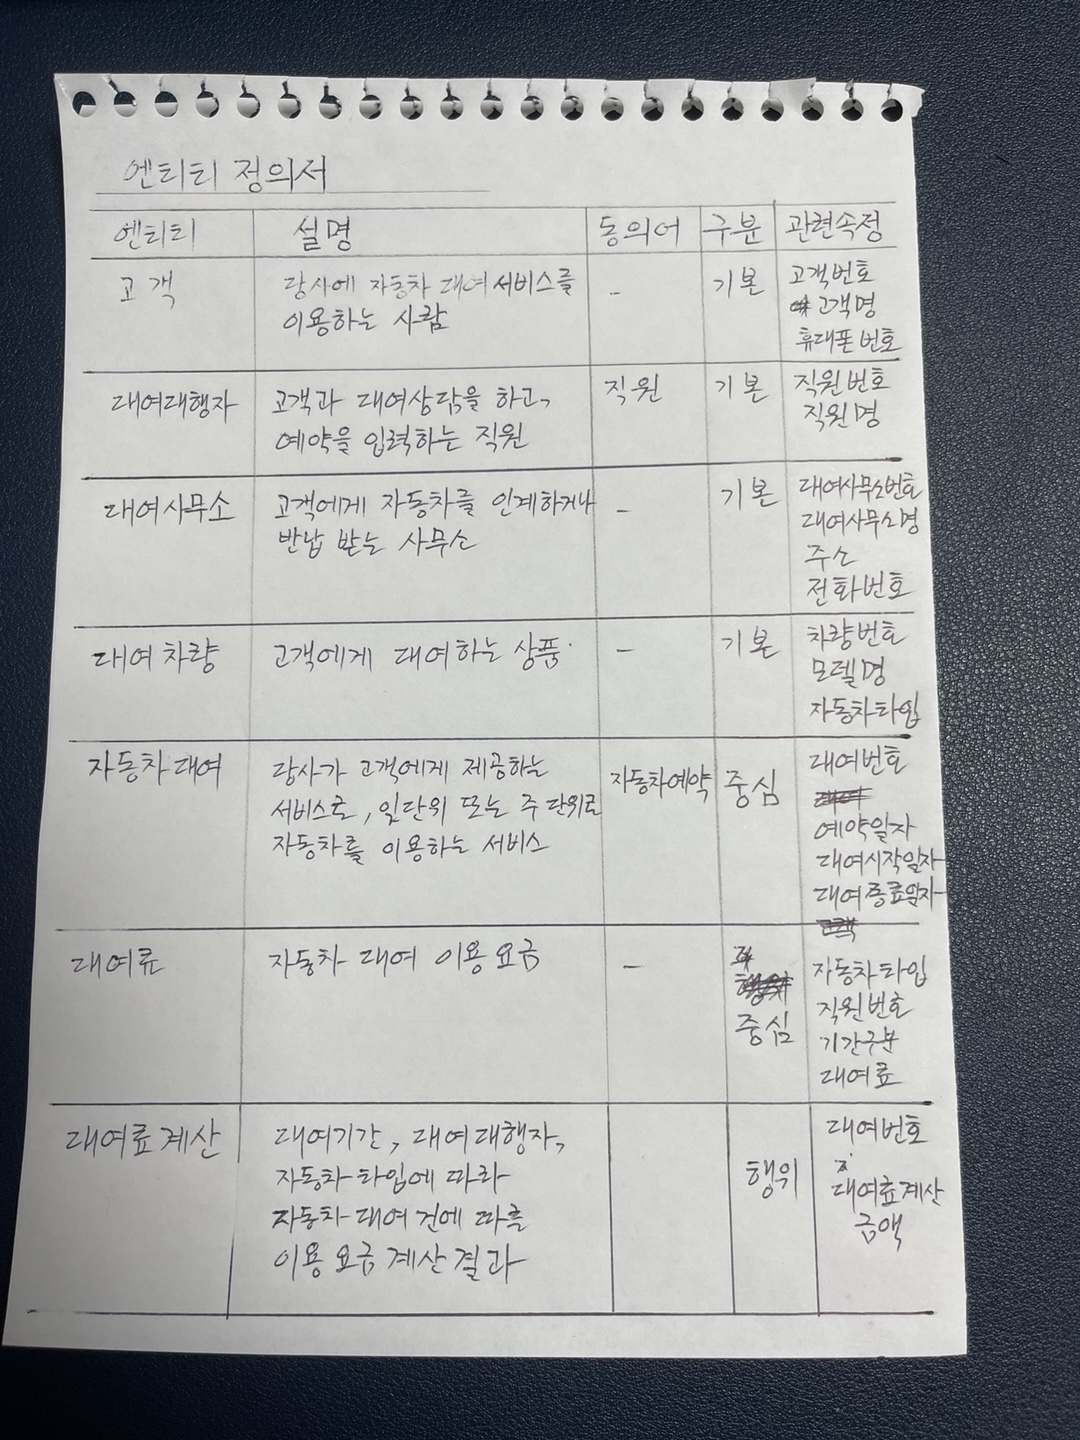 엔티티 정의서
엔티티 설명 동의어 구분 관련속정
고객 당사에 자동차 대여 서비스를 - 기본 고객번호
이용하는 사람 고객명
휴대폰 번호
대여대행자 고객과 대여상담을 하고, 직원 기본 직원번호
예약을 입력하는 직원 직원명
대여사무소 고객에게 자동차를 인계하거나 - 기본 대여사무소번호
반납 받는 사무소 대여사무소명
주소
전화번호
대여 차량 고객에게 대여하는 상품 - 기본 차량번호
모델명
자동차타입
자동차 대여 당사가 고객에게 제공하는 자동차예약 중심 대여번호
서비스로, 일단위 또는 주 단위로
자동차를 이용하는 서비스 예약일자
대여시작일자
대여종료일자
대여료 자동차 대여 이용 요금 - 중심 자동차타입
직원번호
기간구분
대여료
대여료 계산 대여기간, 대여대행자, 행위 대여번호
자동차 타입에 따라 대여료계산
자동차 대여 건에 따른 금액
이용 요금 계산 결과